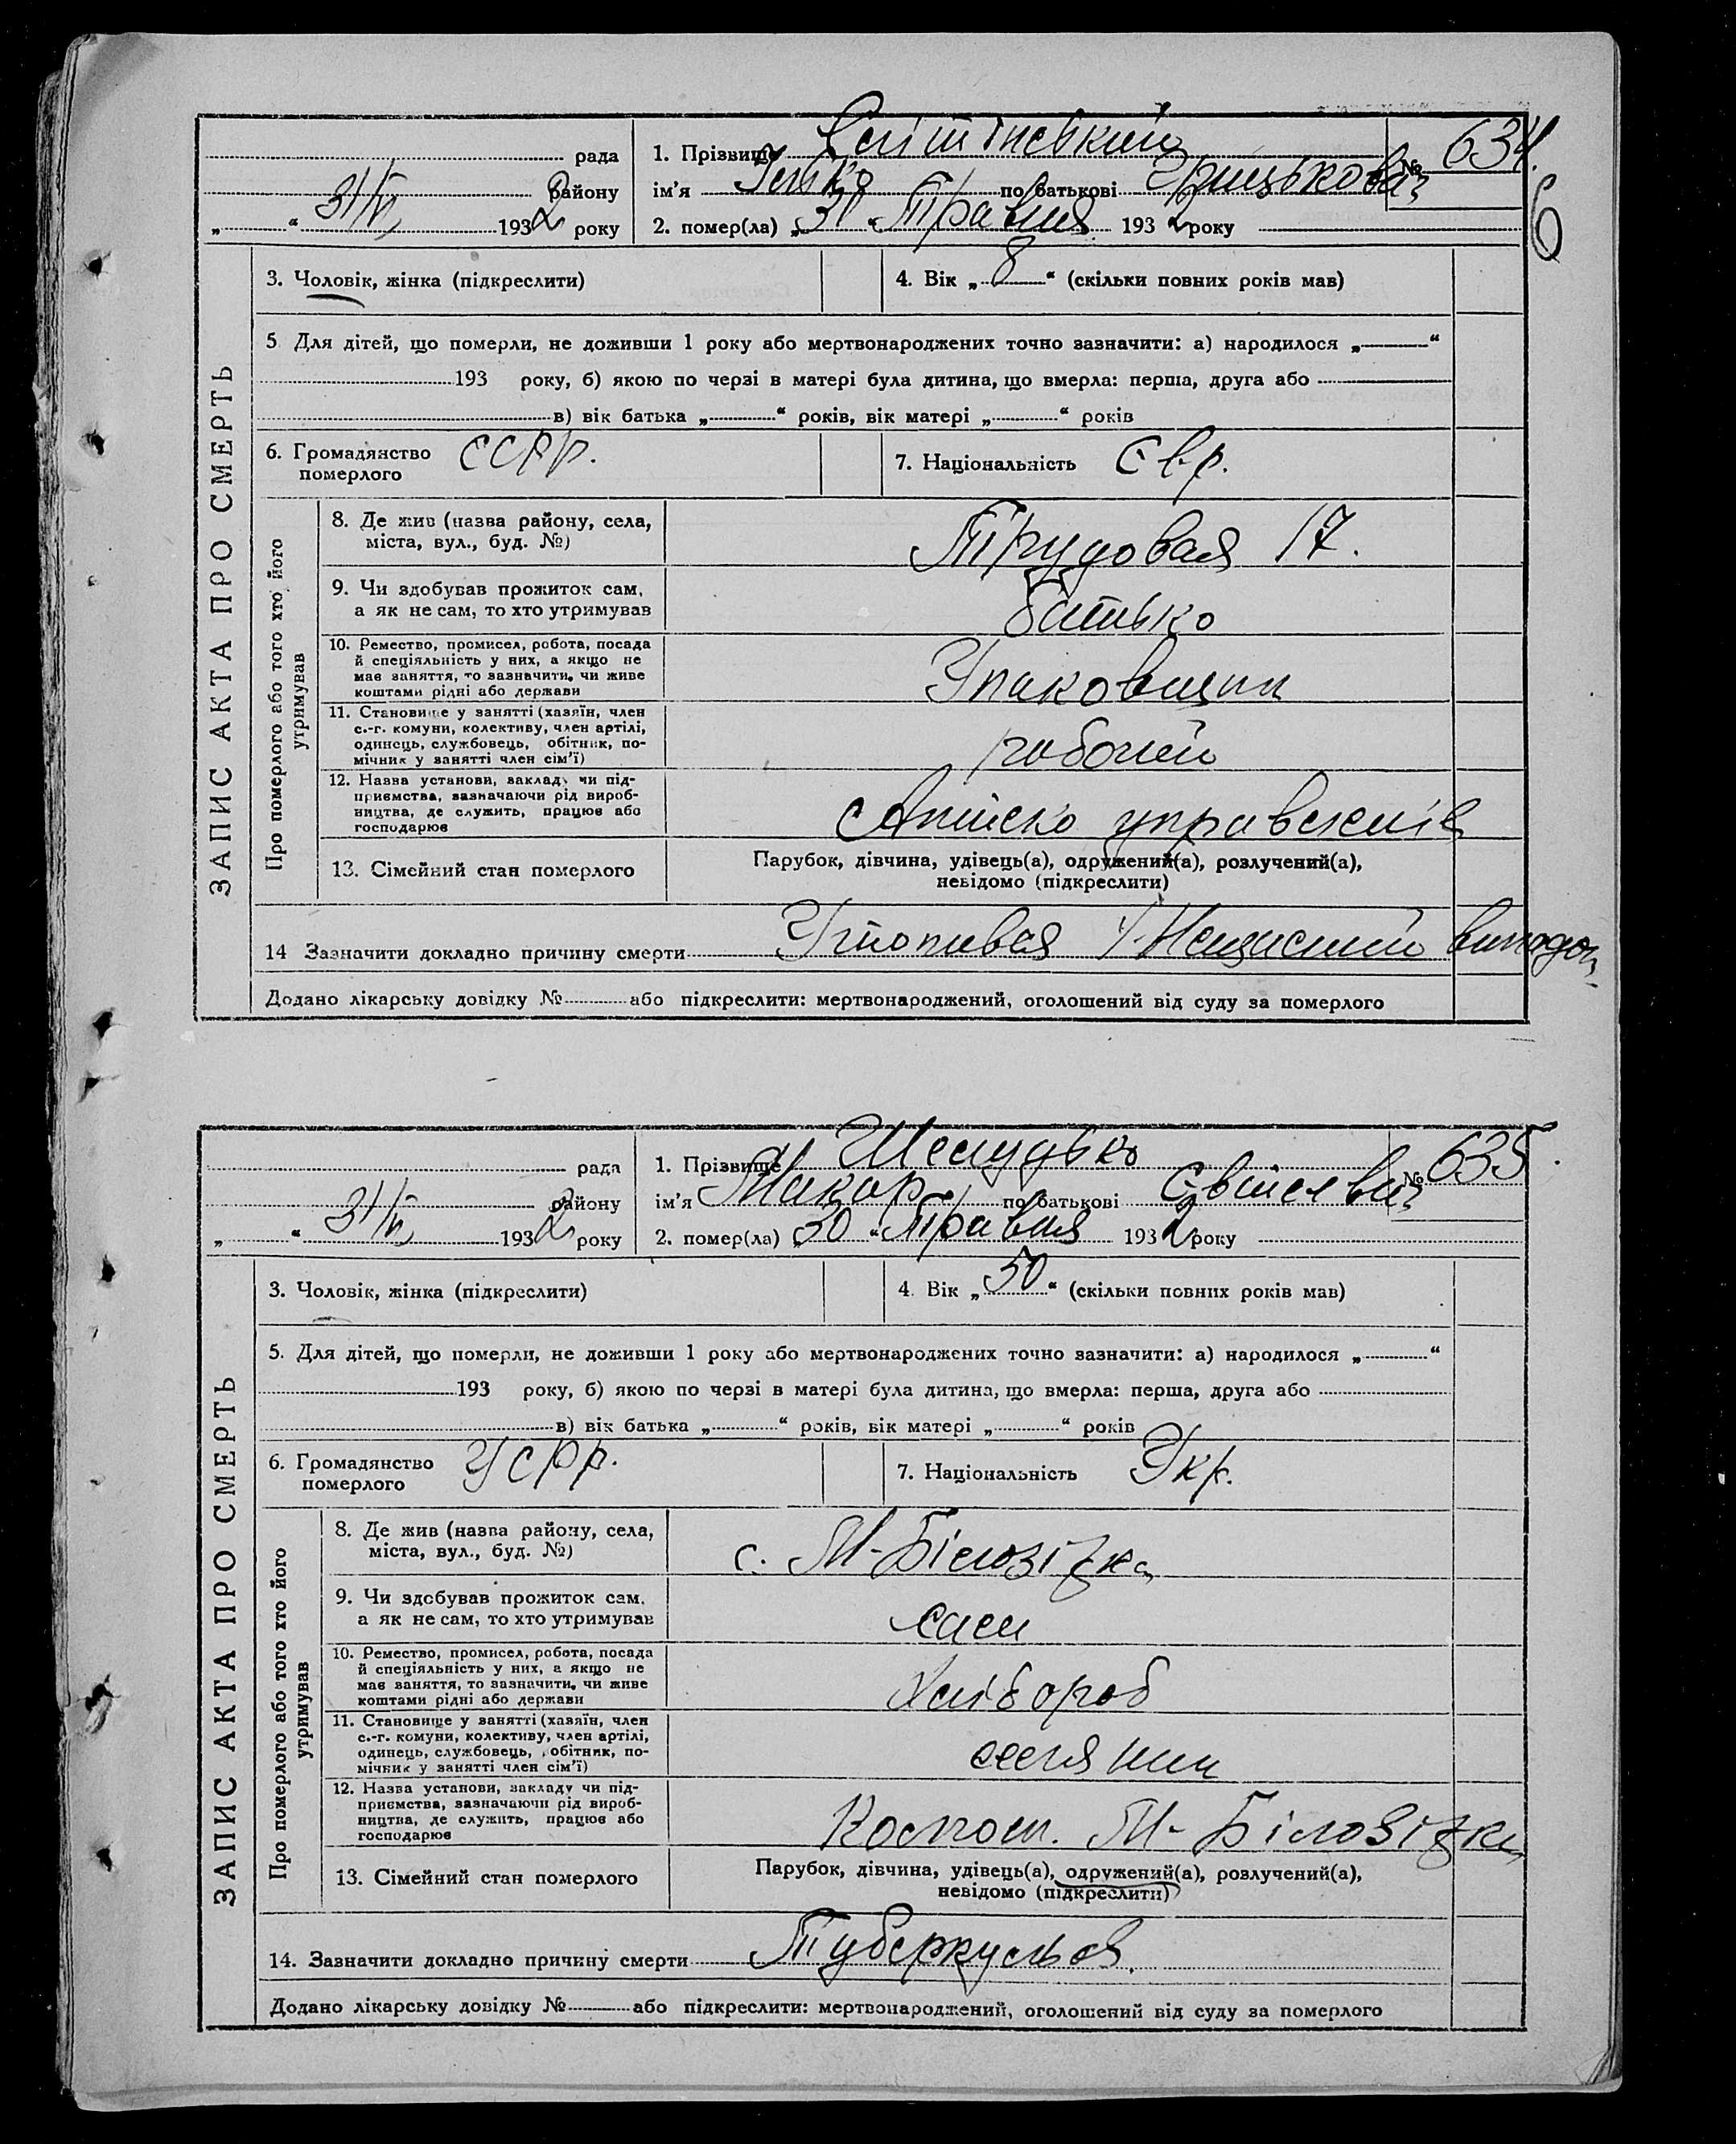 634.
6
рада
району
„ “ 31/V 1932 року
1. Прізвище
ім'я по батькові
№
2. помер(ла) „30“ Травня 1932 року
ЗАПИС АКТА ПРО СМЕРТЬ
3. Чоловік, жінка (підкреслити)
4. Вік „8“ (скільки повних років мав)
5 Для дітей, що померли, не доживши 1 року або мертвонароджених точно зазначити: а) народилося „ “
193 року, б) якою по черзі в матері була дитина, що вмерла: перша, друга або
в) вік батька „ “ років, вік матері „ “ років
6. Громадянство
померлого
ССРР.
7. Національність Євр.
Про померлого або того хто його
утримував
8. Де жив (назва району, села,
міста, вул., буд. №)
Трудовая 17.
9. Чи здобував прожиток сам,
а як не сам, то хто утримував
батько
10. Ремество, промисел, робота, посада
й спеціяльність у них, а якщо не
має заняття, то зазначити, чи живе
коштами рідні або держави
Упаковщик
11. Становище у занятті (хазяїн, член
с.-г. комуни, колективу, член артілі,
одинець, службовець, обітник, по-
мічник у занятті член сім'ї)
робочий
12. Назва установи, закладу чи під-
приємства, зазначаючи рід вироб-
ництва, де служить, працює або
господарює
управління
13. Сімейний стан померлого
Парубок, дівчина, удівець(а), одружений(а), розлучений(а),
невідомо (підкреслити)
14 Зазначити докладно причину смерти Утопився Нещасний випадок
Додано лікарську довідку № або підкреслити: мертвонароджений, оголошений від суду за померлого
635.
рада
району
„ “ 31/V 1932 року
1. Прізвище Шелудько
ім'я Макар по батькові
№
2. помер(ла) „30“ Травня 1932 року
ЗАПИС АКТА ПРО СМЕРТЬ
3. Чоловік, жінка (підкреслити)
4. Вік „50“ (скільки повних років мав)
5. Для дітей, що померли, не доживши 1 року або мертвонароджених точно зазначити: а) народилося „ “
193 року, б) якою по черзі в матері була дитина, що вмерла: перша, друга або
в) вік батька „ “ років, вік матері „ “ років
6. Громадянство
померлого
УСРР.
7. Національність Укр.
Про померлого або того хто його
утримував
8. Де жив (назва району, села,
міста, вул., буд. №)
с. М-Білозірка
9. Чи здобував прожиток сам,
а як не сам, то хто утримував
сам
10. Ремество, промисел, робота, посада
й спеціяльність у них, а якщо не
має заняття, то зазначити, чи живе
коштами рідні або держави
Хлібороб
11. Становище у занятті (хазяїн, член
с.-г. комуни, колективу, член артілі,
одинець, службовець, обітник, по-
мічник у занятті член сім'ї)
селянин
12. Назва установи, закладу чи під-
приємства, зазначаючи рід вироб-
ництва, де служить, працює або
господарює
М-Білозірка
13. Сімейний стан померлого
Парубок, дівчина, удівець(а), одружений(а), розлучений(а),
невідомо (підкреслити)
14. Зазначити докладно причину смерти Туберкульоз.
Додано лікарську довідку № або підкреслити: мертвонароджений, оголошений від суду за померлого